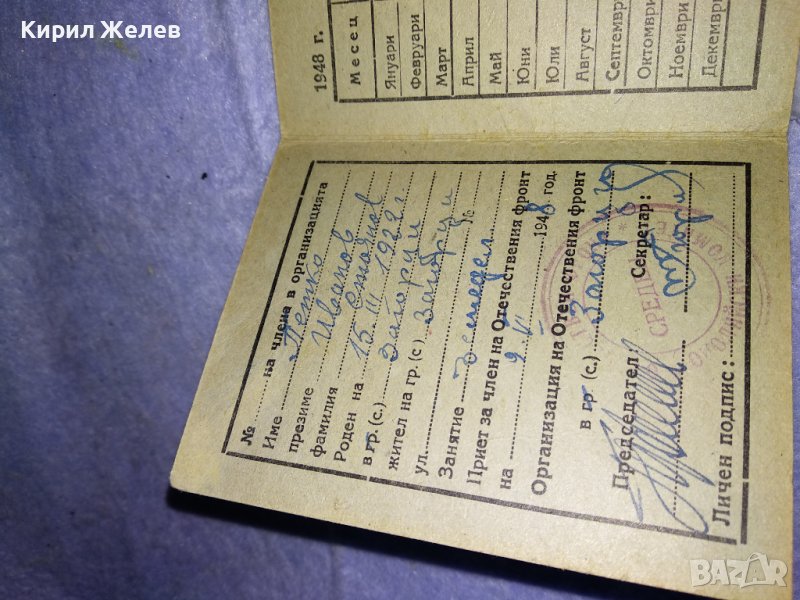 Кирил Желев
1948 г.
Месец
Януари
Февруари
Март
Април
Май
Юни
Юли
Август
Септември
Октомври
Ноември
Декември
№ на члена в организацията
Име Петко
презиме Иванов
фамилия Стоянов
Роден на 15. III 1922 г.
в гр. (с.) Загорци
жител на гр. (с) Загорци
ул. №
Занятие Земедел.
Приет за член на Отечествения фронт
на 9. VI 1948 год.
Организация на Отечествения фронт
в гр (с.) Загорци
Председател: Секретар:
Личен подпис:
СРЕДЕЦ
BAZAR